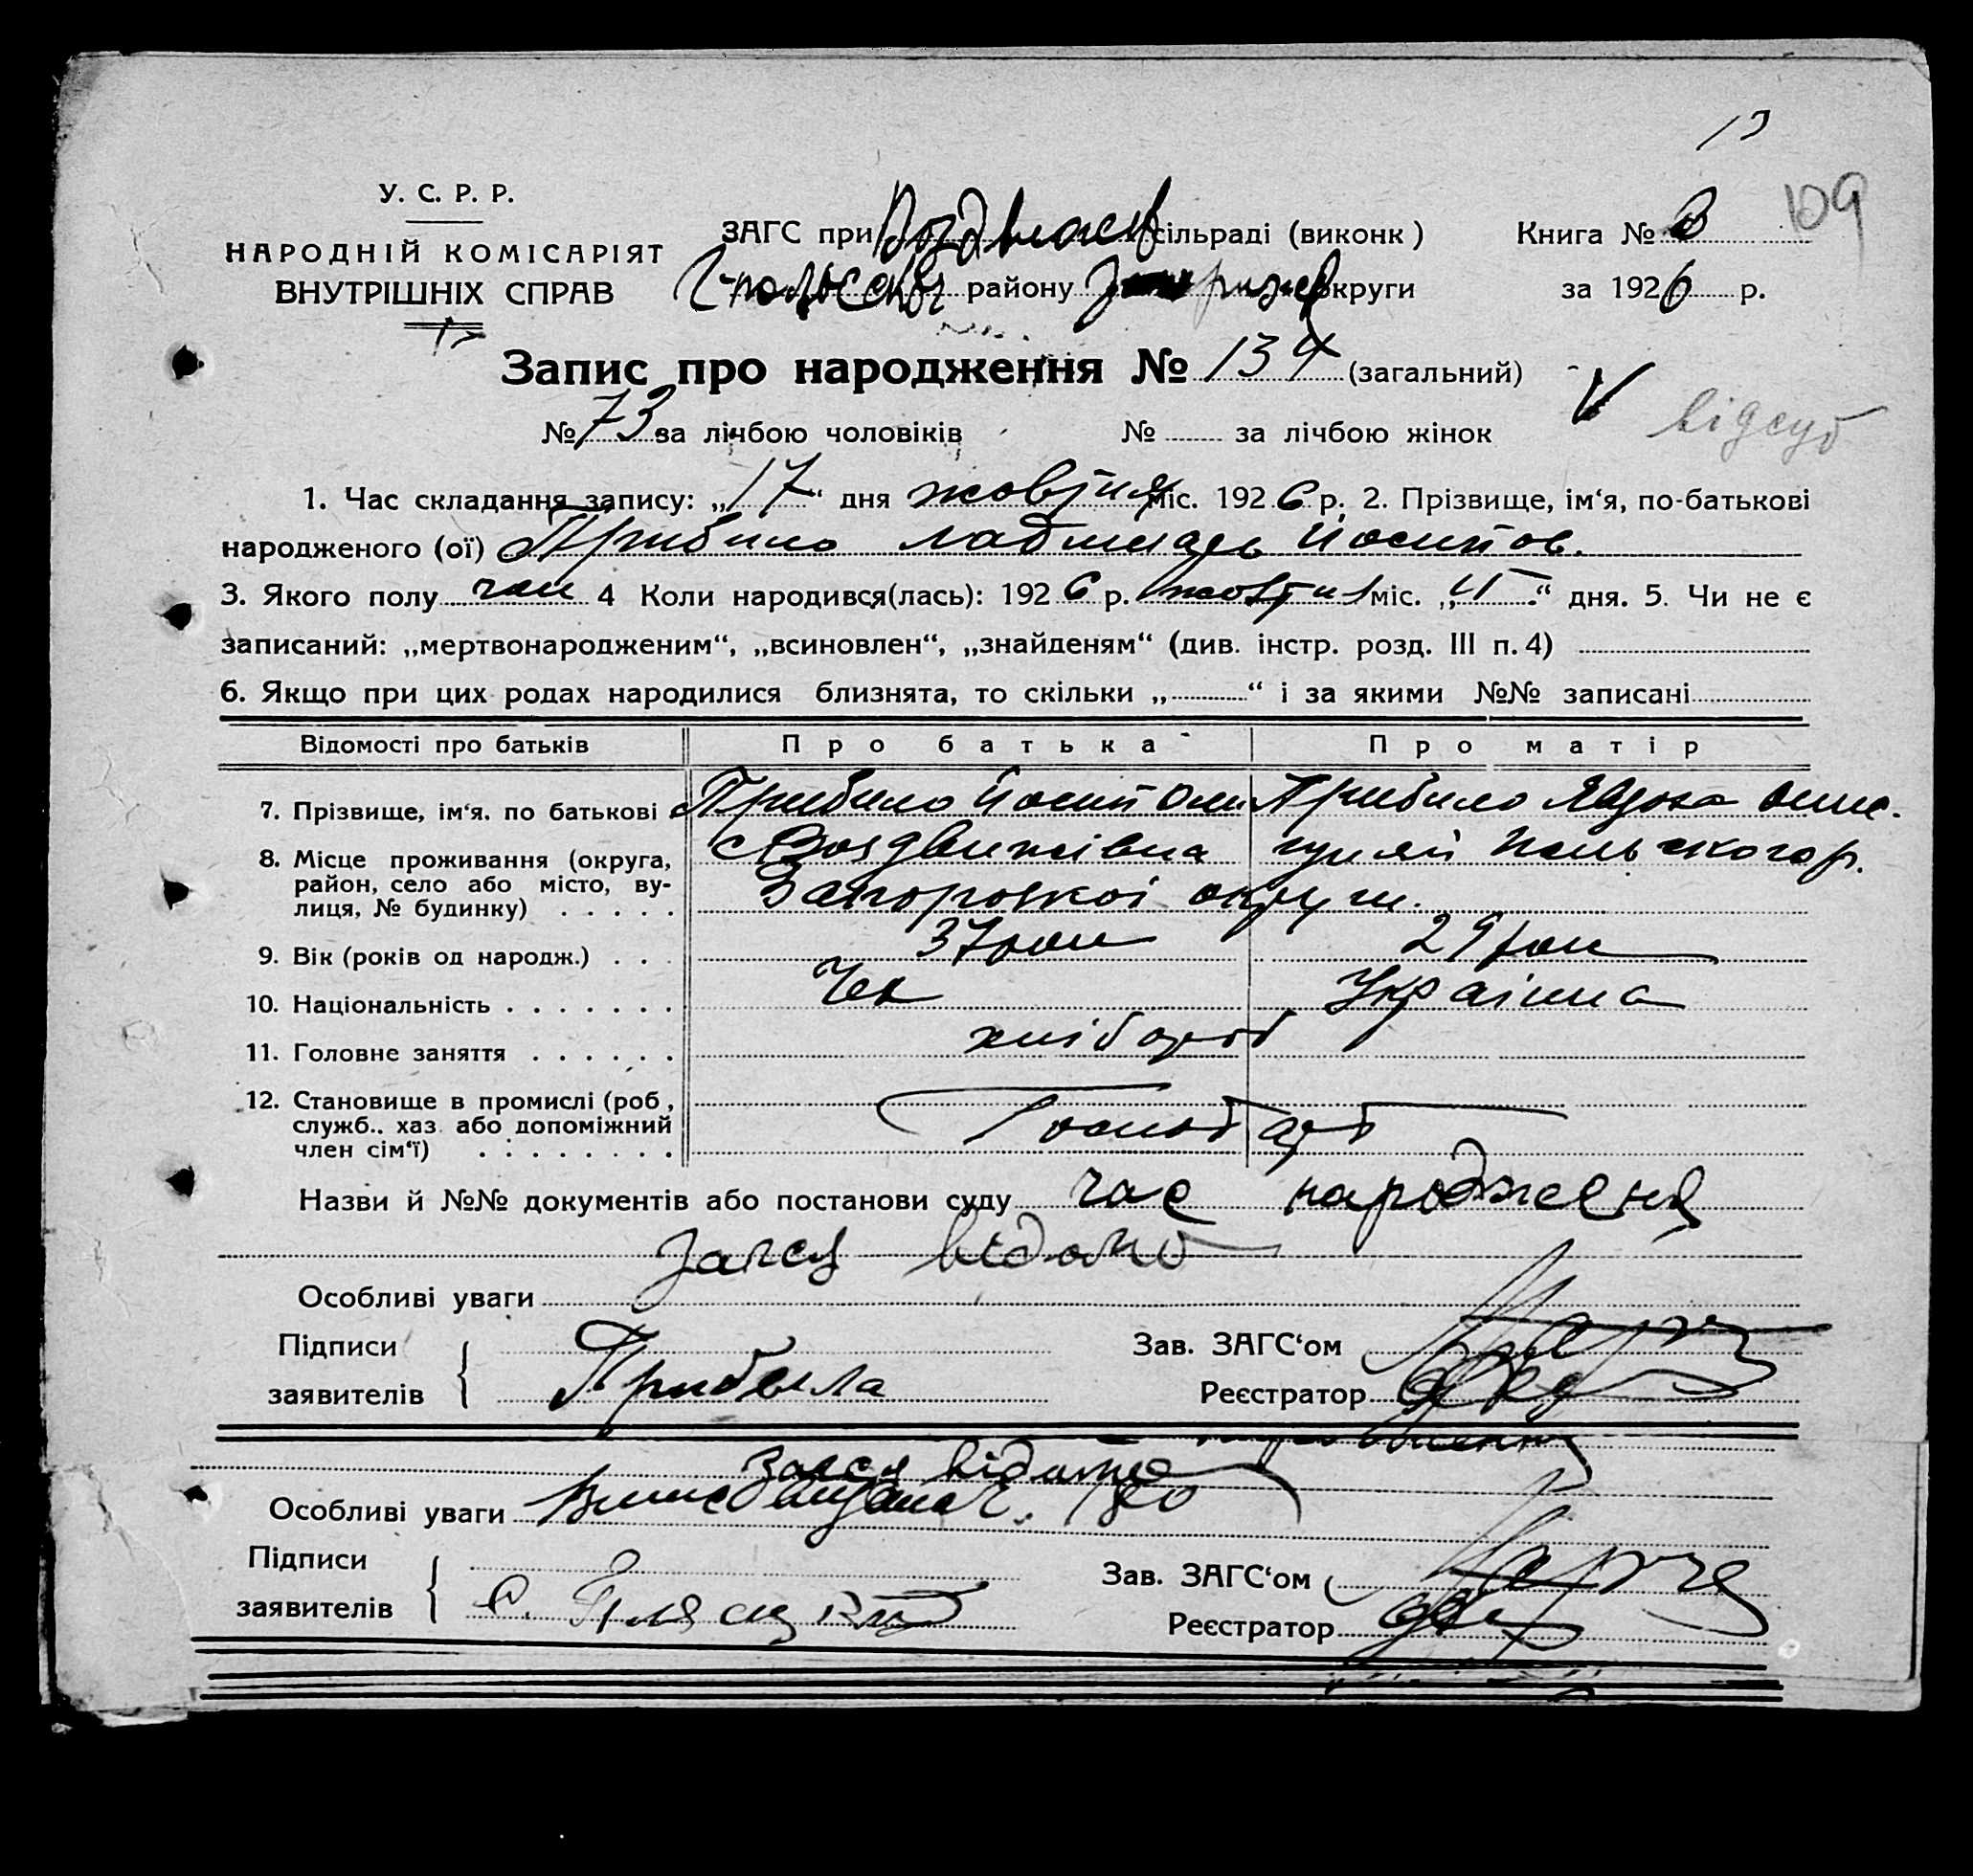 109
У. С. Р. Р.
НАРОДНІЙ КОМІСАРІЯТ
ВНУТРІШНІХ СПРАВ
ЗАГС при сільраді (виконк) Книга № 3
Г-польськ району округи за 1926 р.
Запис про народження № 134 (загальний)
№ 73 за лічбою чоловіків № за лічбою жінок
відсуб
1. Час складання запису: „17“ дня жовтня міс. 1926 р. 2. Прізвище, ім‘я, по-батькові
народженого (ої) Прибило Йосипов.
3. Якого полу чол 4 Коли народився(лась): 1926 р. жовтня міс. „11“ дня. 5. Чи не є
записаний: „мертвонародженим“, „всиновлен“, „знайденям“ (див. інстр. розд. III п. 4)
6. Якщо при цих родах народилися близнята, то скільки „ “ і за якими №№ записані
Відомості про батьків Про батька Про матір
7. Прізвище, ім‘я. по батькові Прибило Йосип Прибило Явдоха
8. Місце проживання (округа, Воздвижівка гуляй Польського р.
район, село або місто, ву- Запорозкої округи.
лиця, № будинку)
9. Вік (років од народж.) 37 рок 29 рок
10. Національність Чех Українка
11. Головне заняття хлібороб
12. Становище в промислі (роб, Господарь
служб.. хаз. або допоміжний
член сім‘ї)
Назви й №№ документів або постанови суду час народженя
Загсу відомо
Особливі уваги
Підписи Зав. ЗАГС‘ом
заявителів Прибила Реєстратор
Загсу відомо
Особливі уваги
Підписи Зав. ЗАГС‘ом
заявителів Реєстратор